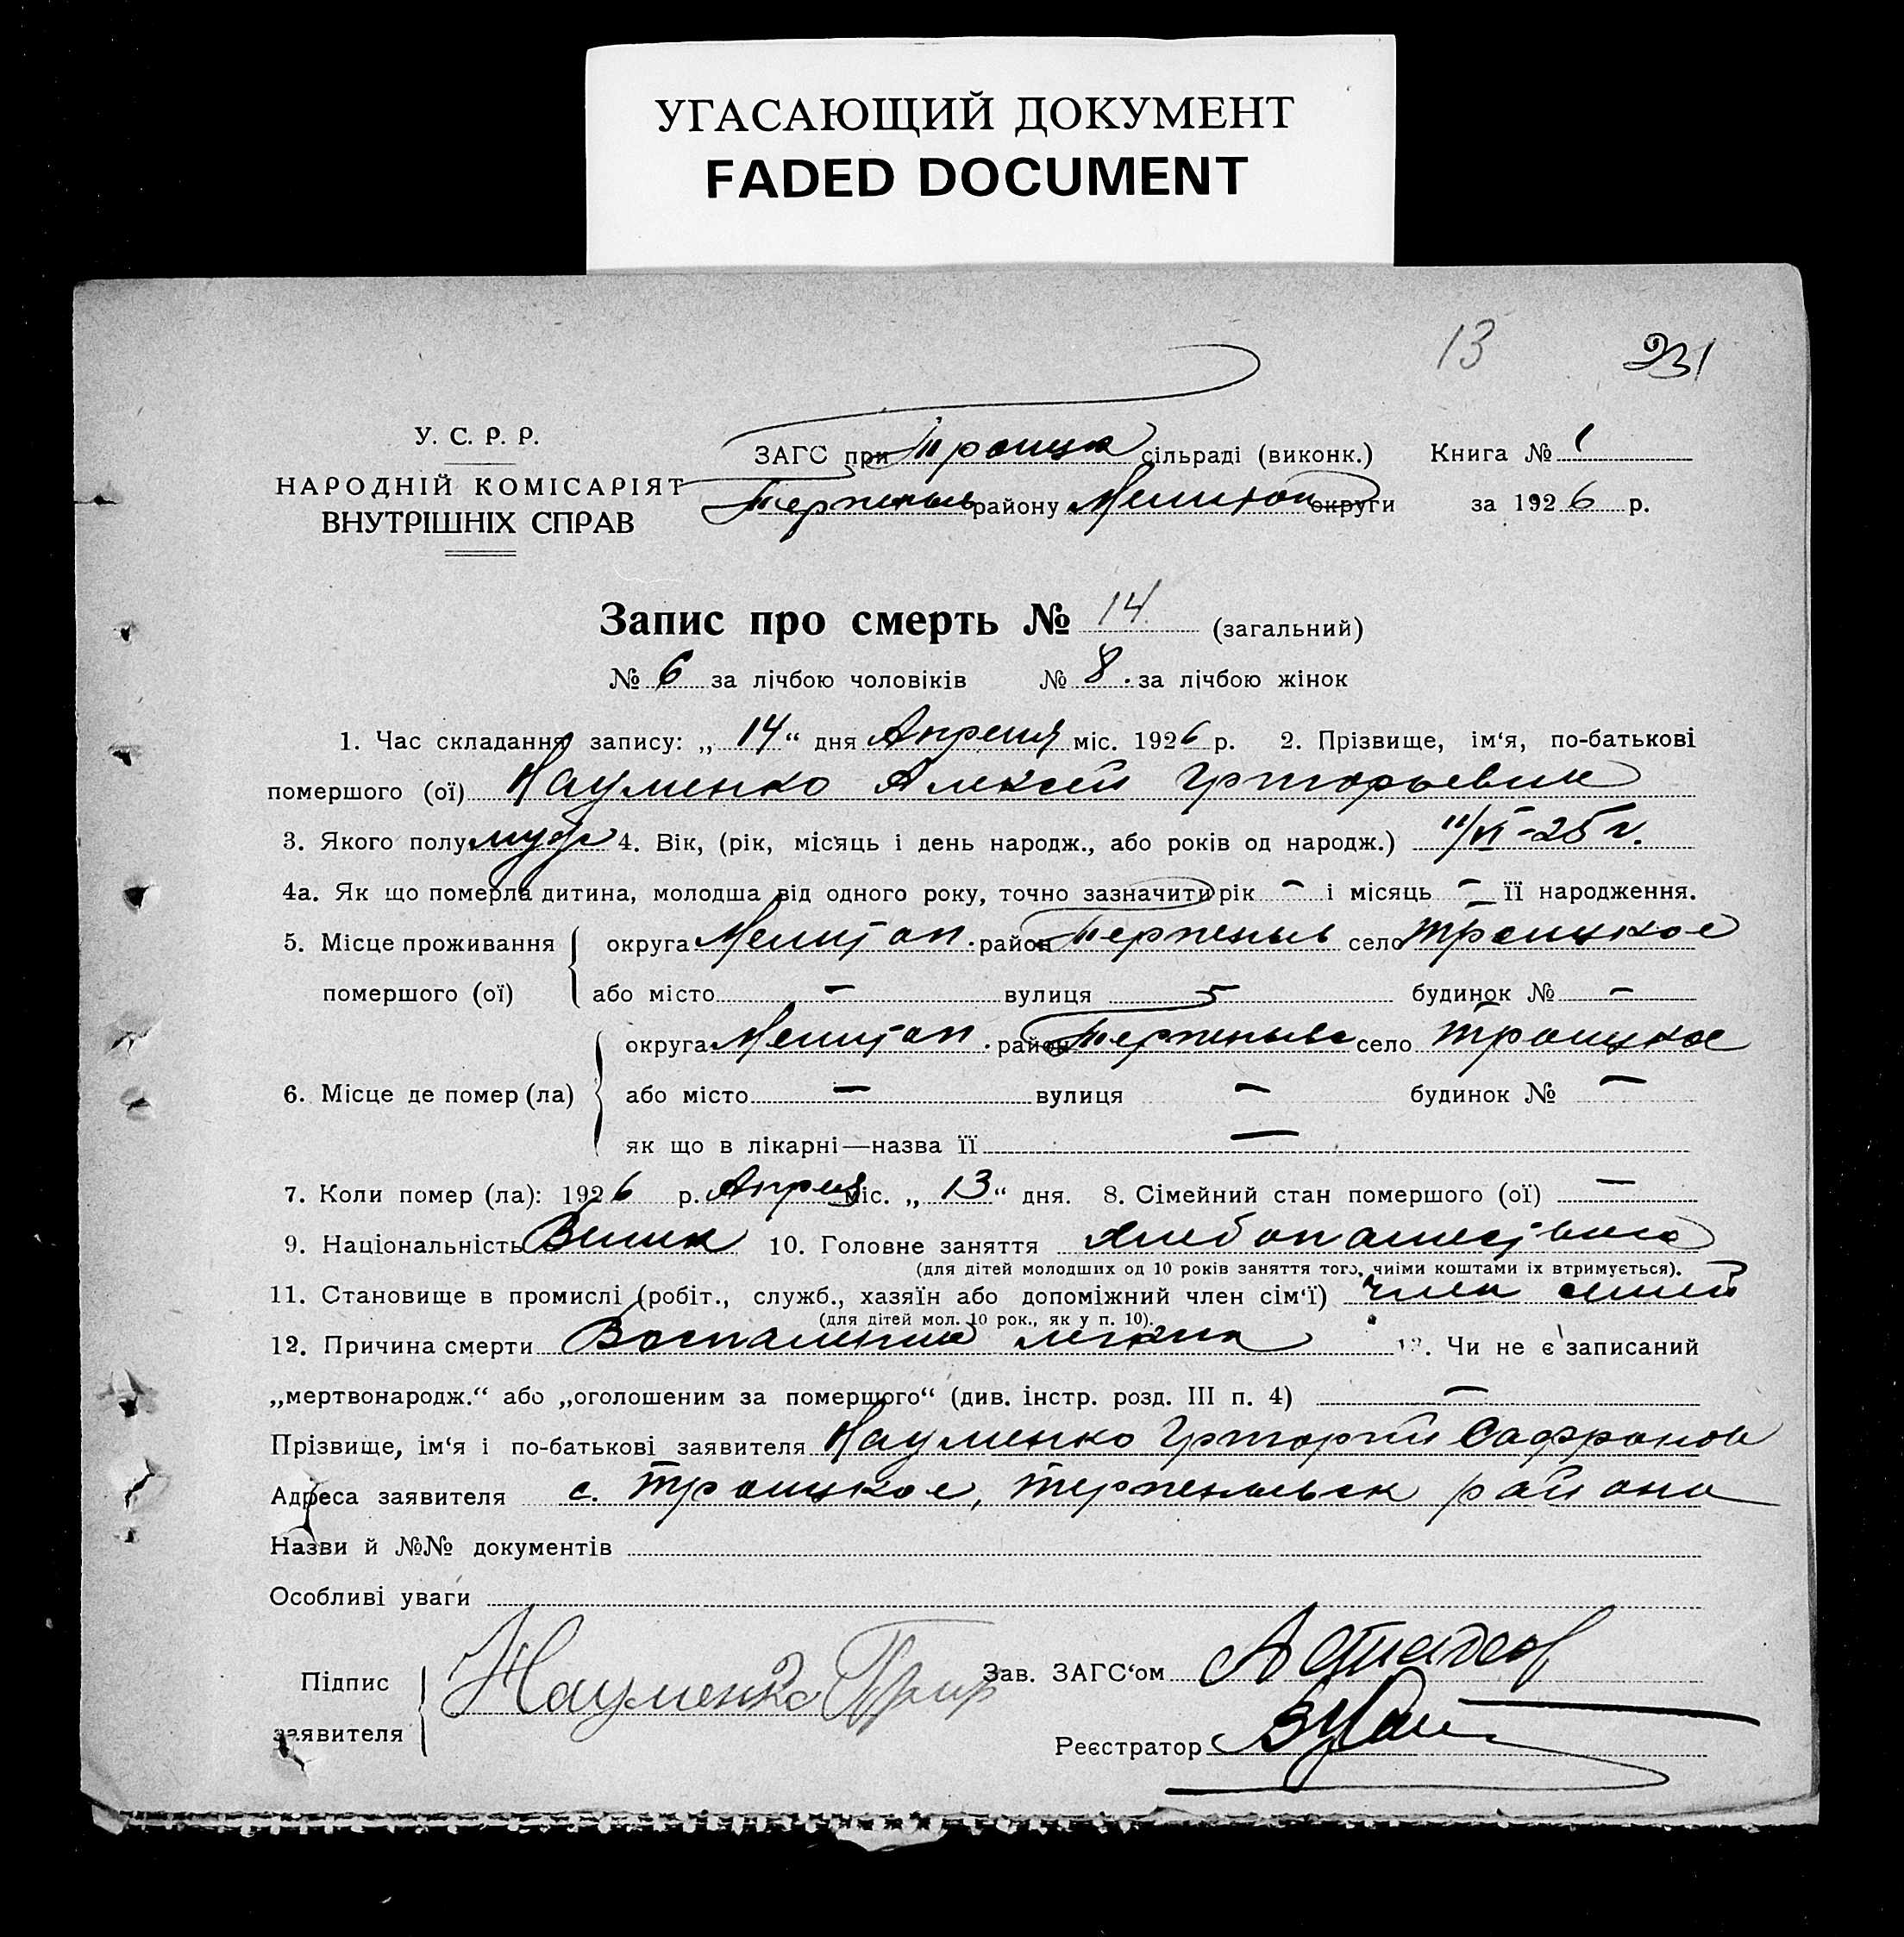 УГАСАЮЩИЙ ДОКУМЕНТ
FADED DOCUMENT
13 231
У. С. Р. Р.
НАРОДНІЙ КОМІСАРІЯТ
ВНУТРІШНІХ СПРАВ
ЗАГС при Троицк сільраді (виконк.) Книга № 1
Терпеньев району Мелитоп округи за 1926 р.
Запис про смерть № 14 (загальний)
№ 6 за лічбою чоловіків № 8. за лічбою жінок
1. Час складання запису: „ 14 “ дня Апреля міс. 1926 р. 2. Прізвище, ім‘я, по-батькові
помершого (ої) Науменко Алексей Григорьевич
3. Якого полу муж 4. Вік, (рік, місяць і день народж., або років од народж.) 11/VI-25 г.
4а. Як що померла дитина, молодша від одного року, точно зазначити рік – і місяць – її народження.
5. Місце проживання округа Мелитоп. район Терпеньев село Троицкое
помершого (ої) або місто – вулиця – будинок № –
округа Мелитоп. район Терпеньев село Троицкое
6. Місце де помер (ла) або місто – вулиця – будинок № –
як що в лікарні—назва її –
7. Коли помер (ла): 1926 р. Апреля міс. „ 13 “ дня. 8. Сімейний стан помершого (ої) –
9. Національність Велик 10. Головне заняття Хлебопашество
(для дітей молодших од 10 років заняття того, чиїми коштами їх втримується).
11. Становище в промислі (робіт., служб., хазяїн або допоміжний член сім‘ї) член семьи
(для дітей мол. 10 рок., як у п. 10).
12. Причина смерти Воспаление легких 13. Чи не є записаний
„мертвонародж.“ або „оголошеним за помершого“ (див. інстр. розд. III п. 4) –
Прізвище, ім‘я і по-батькові заявителя Науменко Григорий Сафронов
Адреса заявителя с. Троицкое, Терпеньевск района
Назви й №№ документів
Особливі уваги
Підпис
заявителя
Науменко Григ
Зав. ЗАГС‘ом
Реєстратор